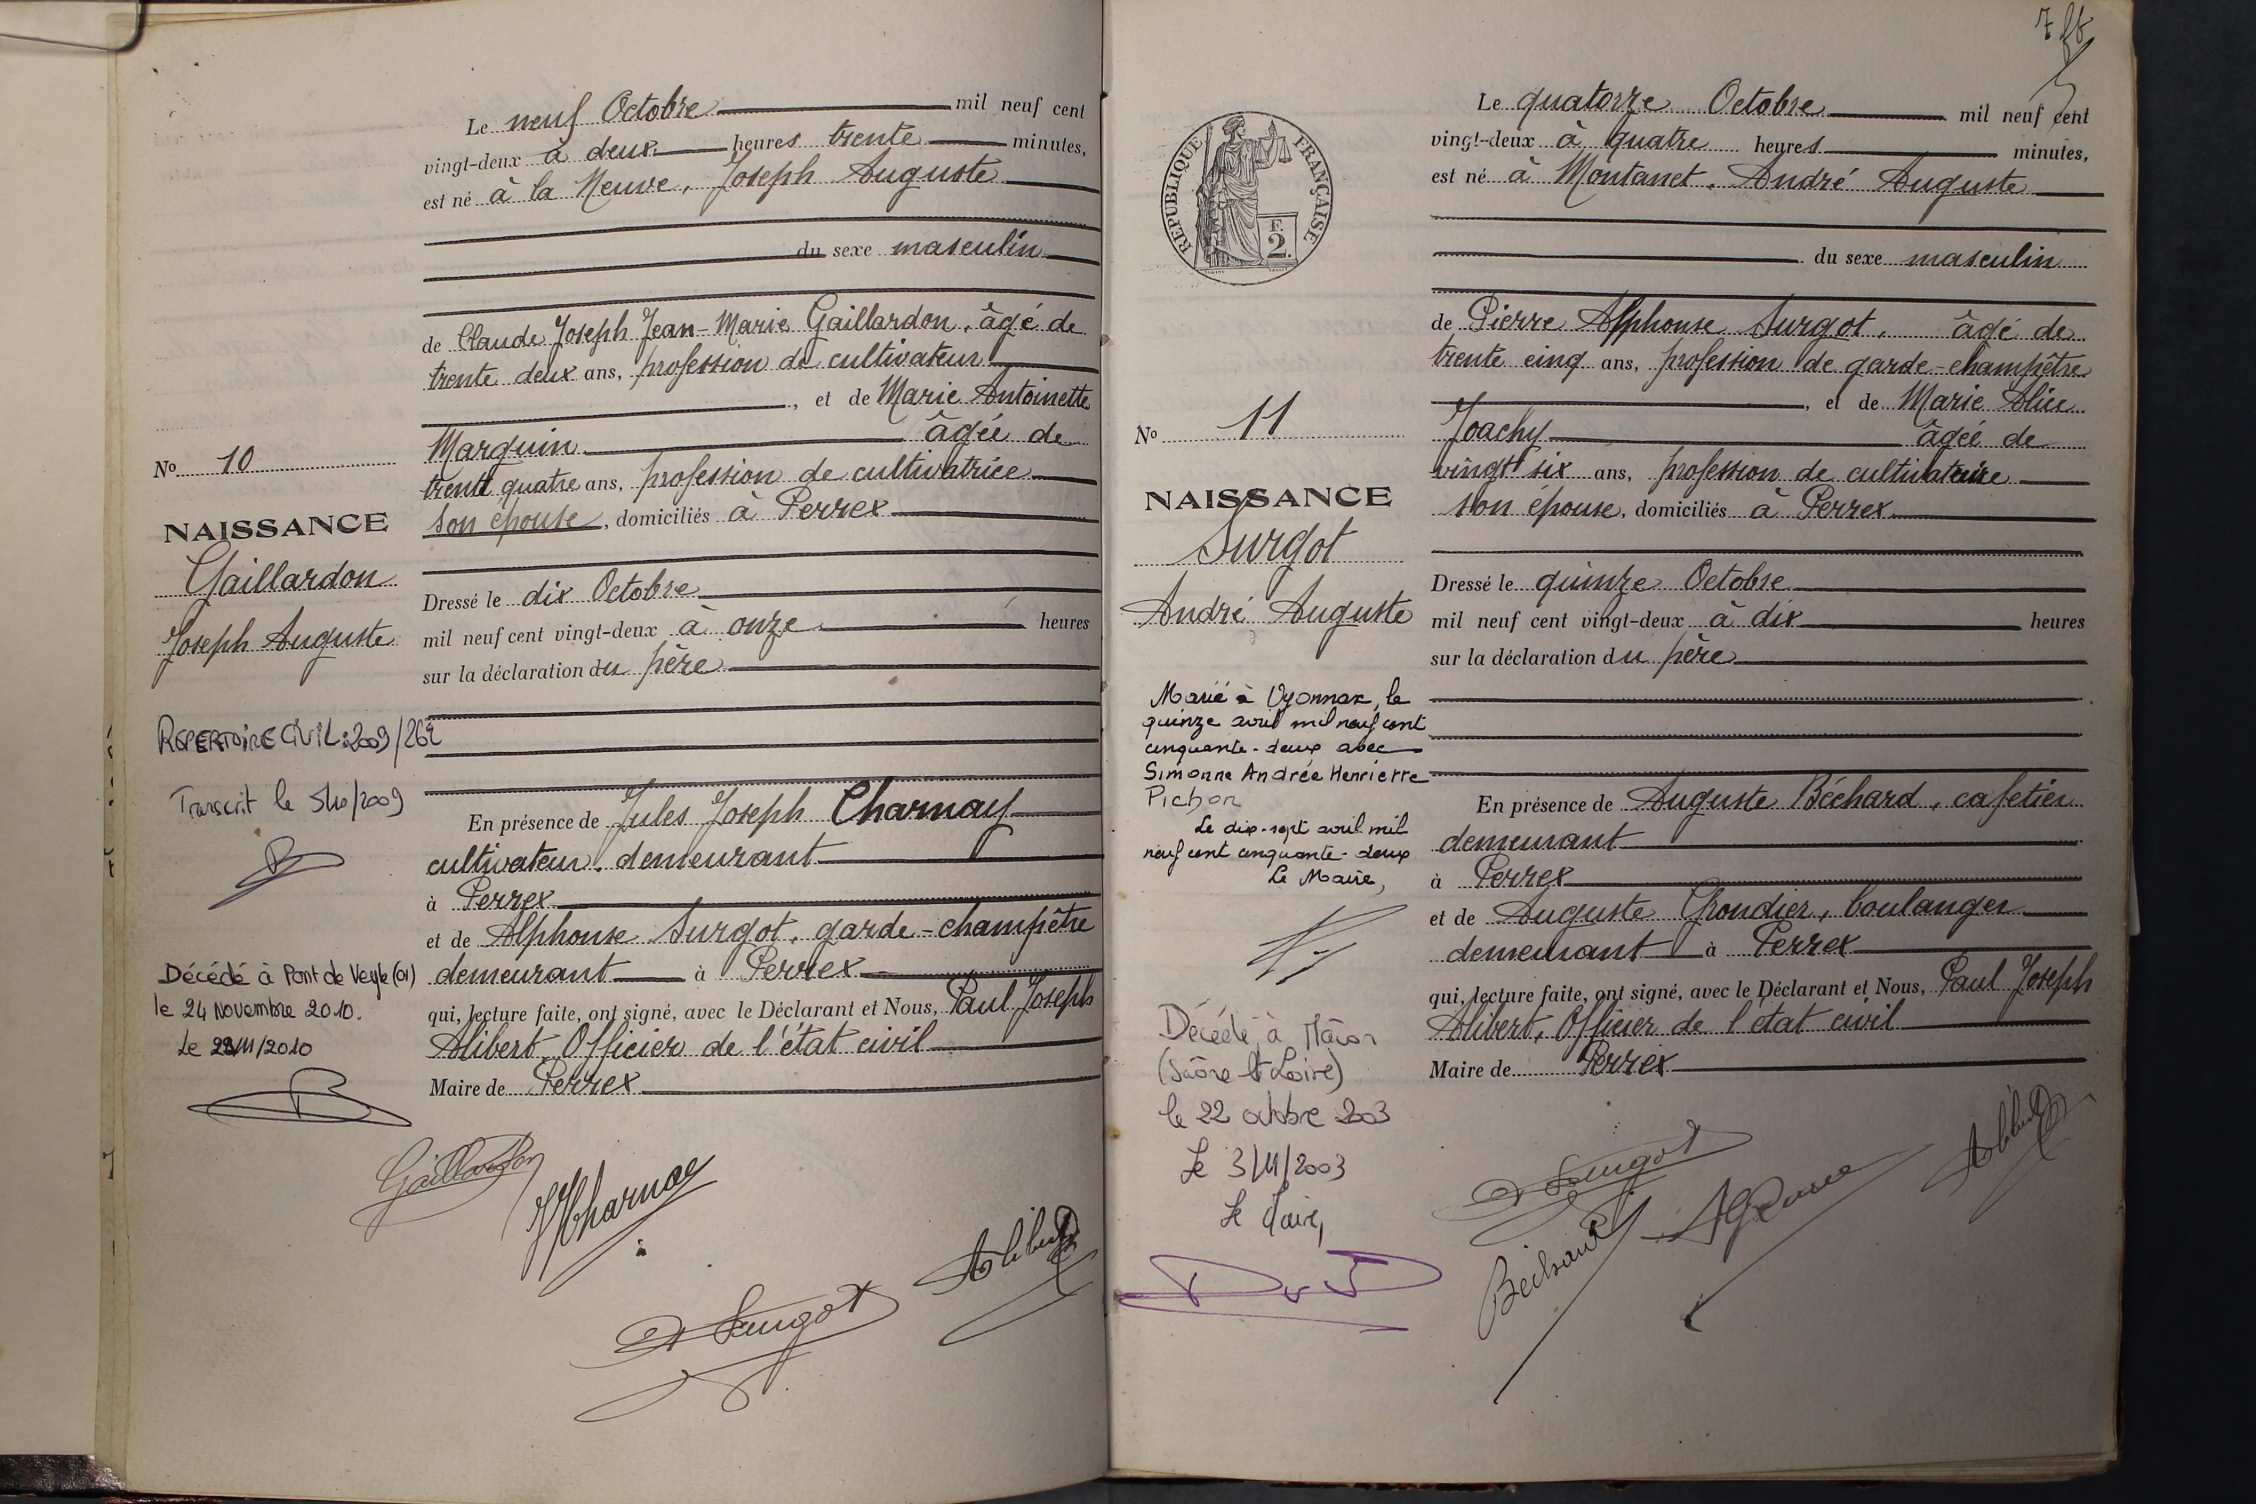 Le neuf Octobre mil neuf cent
vingt-deux à deux heures trente minutes,
est né à la Neuve, Joseph Auguste
du sexe masculin
de Claude Joseph Jean-Marie Gaillardon, âgé de
trente deux ans, profession de cultivateur
, et de Marie Antoinette
Marguin âgée de
trente quatre ans, profession de cultivatrice
son épouse, domiciliés à Perrex
Dressé le dix Octobre
mil neuf cent vingt-deux à onze heures
sur la déclaration du père
En présence de Jules Joseph Charnay
cultivateur, demeurant
à Perrex
et de Alphonse Surgot, garde-champêtre
demeurant à Perrex
qui, lecture faite, ont signé, avec le Déclarant et Nous, Paul Joseph
Alibert, Officier de l'état civil
Maire de Perrex
No 10
NAISSANCE
Gaillardon
Joseph Auguste
REPERTOIRE CIVIL: 2009/262
Transcrit le 5/10/2009
Décédé à Pont de Veyle (01)
le 24 Novembre 2010.
Le 28/11/2010
Gaillardon
JJCharnay
A Surgot
Alibert
7
Le quatorze Octobre mil neuf cent
vingt-deux à quatre heures minutes,
est né à Montanet, André Auguste
du sexe masculin
de Pierre Alphonse Surgot, âgé de
trente cinq ans, profession de garde-champêtre
, et de Marie Alice
Joachy âgée de
vingt six ans, profession de cultivatrice
son épouse, domiciliés à Perrex
Dressé le quinze Octobre
mil neuf cent vingt-deux à dix heures
sur la déclaration du père
En présence de Auguste Béchard, cafetier
demeurant
à Perrex
et de Auguste Grondier, boulanger
demeurant à Perrex
qui, lecture faite, ont signé, avec le Déclarant et Nous, Paul Joseph
Alibert, Officier de l'état civil
Maire de Perrex
REPUBLIQUE FRANÇAISE
F.
2.
No 11
NAISSANCE
Surgot
André Auguste
Marié à Oyonnax, le
quinze avril mil neuf cent
cinquante-deux avec
Simonne Andrée Henriette
Pichon
Le dix-sept avril mil
neuf cent cinquante-deux
Le Maire,
Décédé à Mâcon
(Saône et Loire)
le 22 octobre 2003
Le 3/11/2003
Le Maire,
A Surgot
Béchard
Alibert